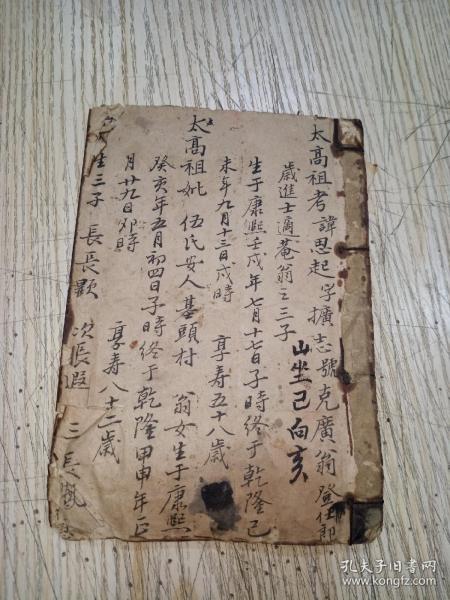 太高祖考諱思起字擴志號克廣翁登仕郎
歲進士適菴翁之三子
山坐己向亥
生于康熙壬戌年七月十七日子時終于乾隆己
未年九月十三日戌時 享寿五十八歲
太高祖妣伍氏安人基頭村 翁女生于康熙
癸亥年五月初四日子時終于乾隆甲申年正
月廿九日卯時 享寿八十二歲
生三子 長長顯 次長遐 三長凱
孔夫子旧书网
www.kongfz.com